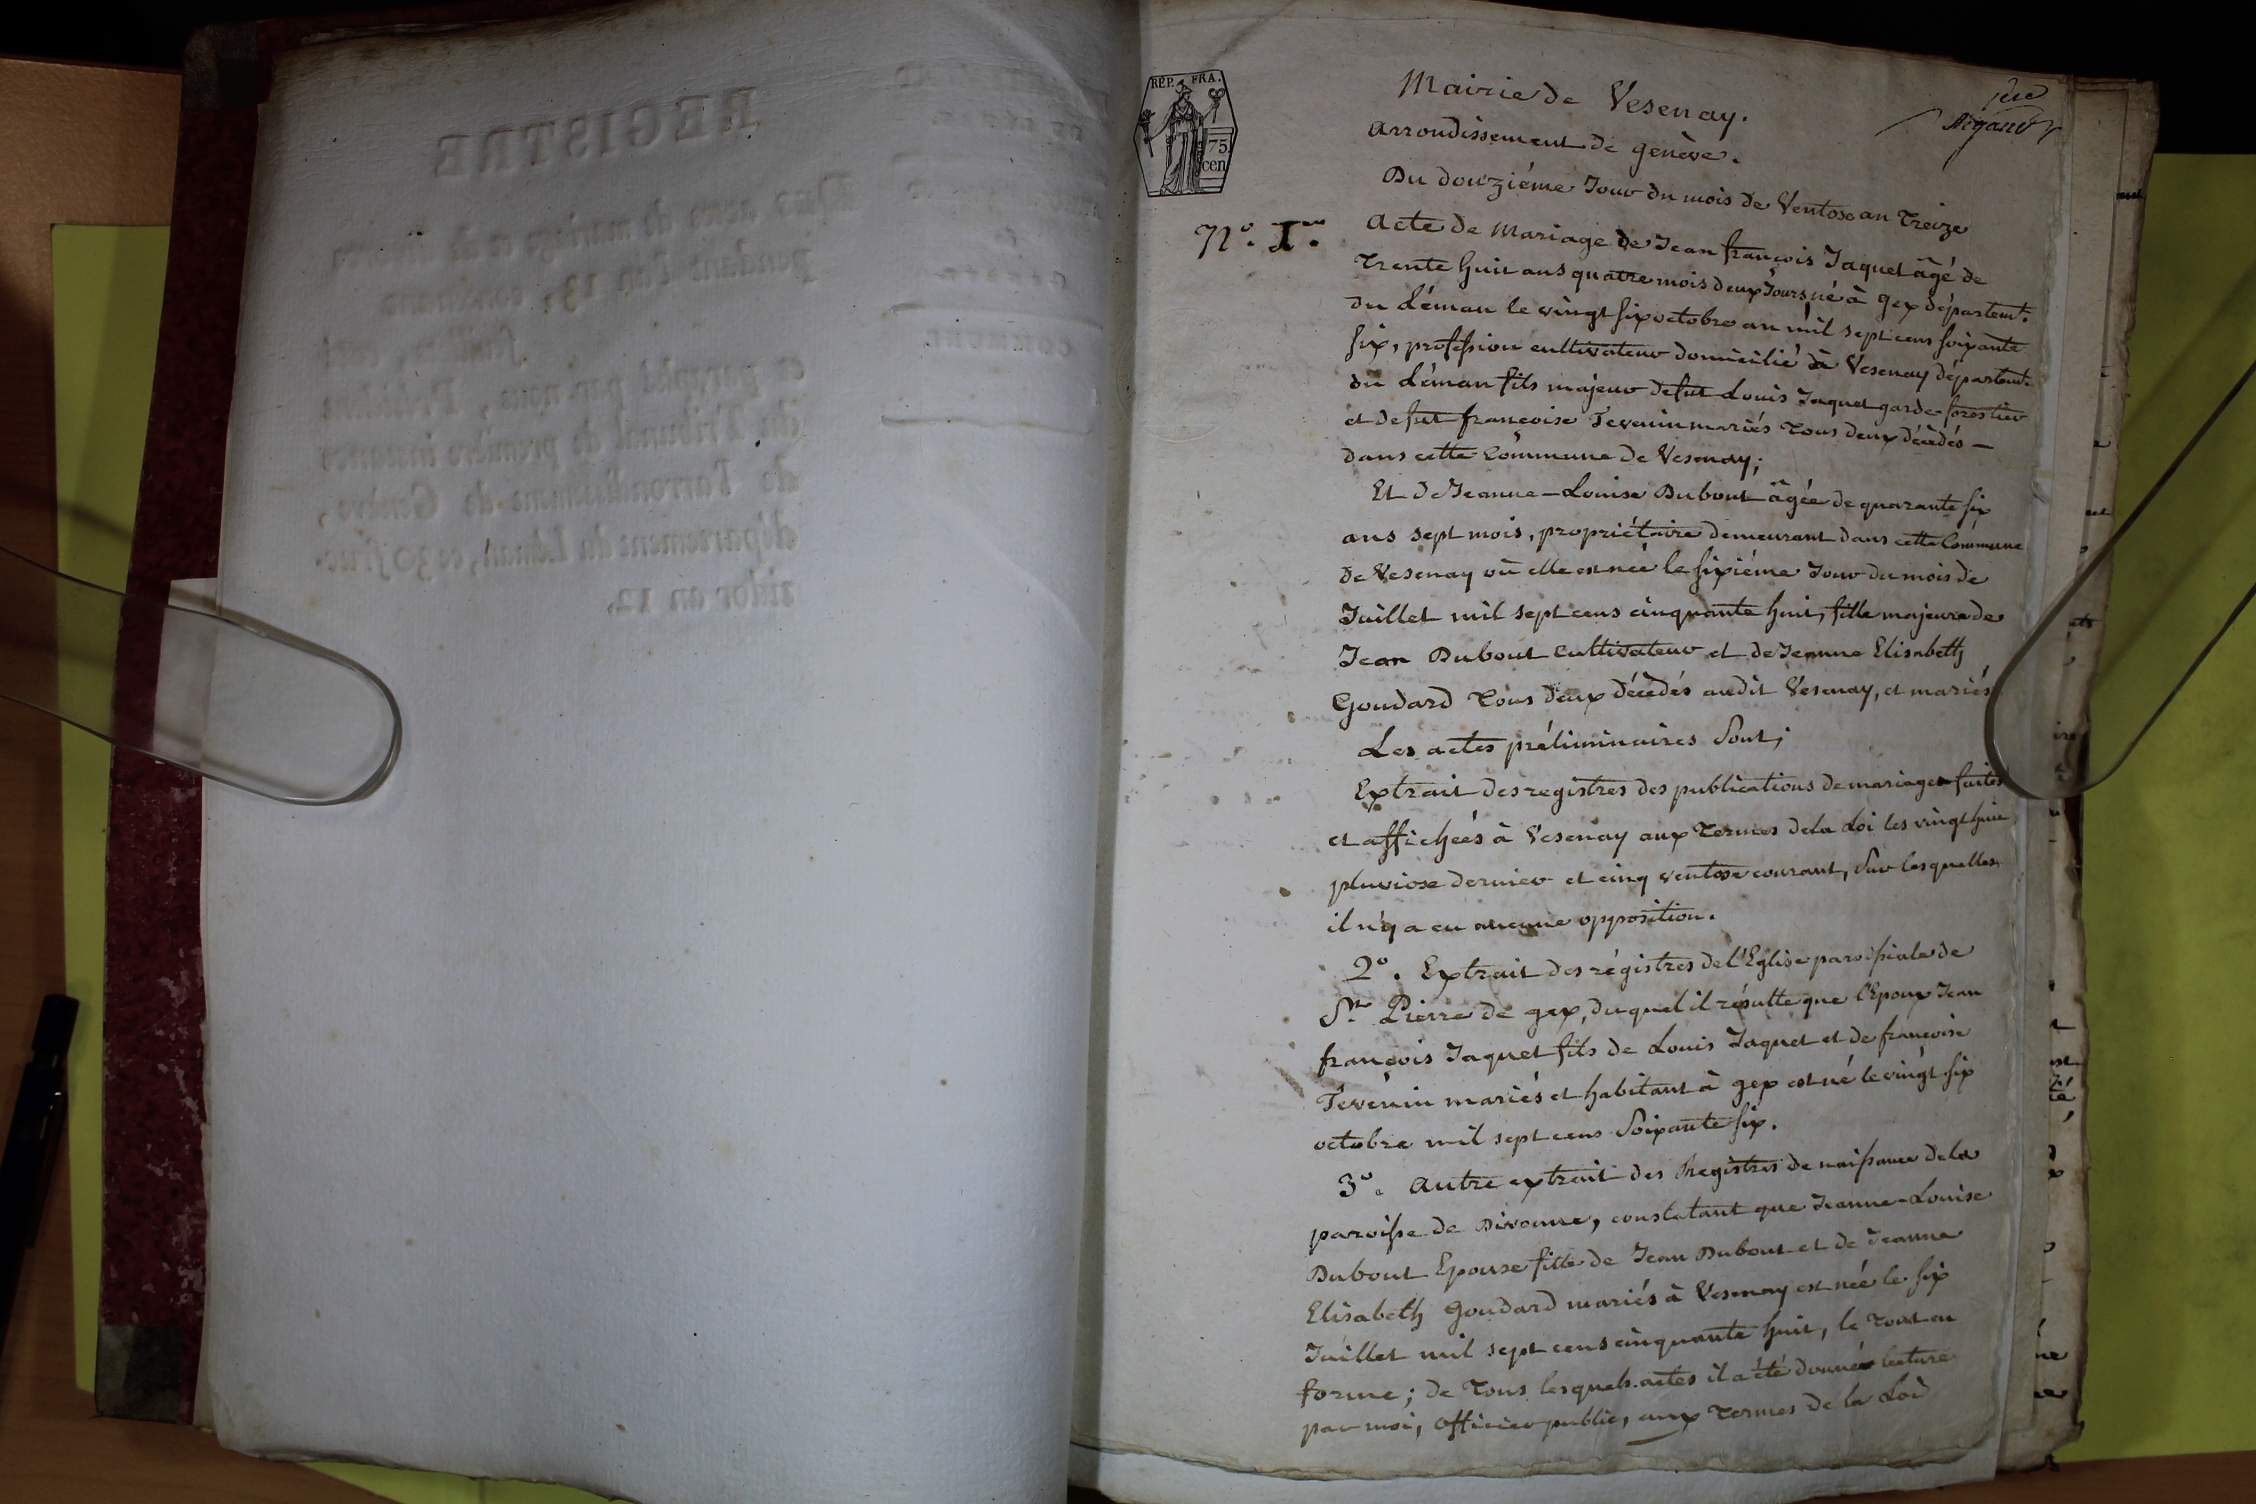 REGISTRE
Des actes de mariage et de divorce
pendant l'an 13, contenant
feuillets, coté
et paraphé par nous, Président
du Tribunal de première instance
de l'arrondissement de Genève,
département du Léman, ce 30 fruc-
tidor an 12.
COMMUNE
REP. FRA.
75
cen
Mairie de Vesenay.
arrondissement de genève.
Du douzième Jour du mois de Ventose an Treize
N°. I.er
Acte de Mariage de Jean françois Jaquet âgé de
Trente huit ans quatre mois deux Jours, né à gex départemt.
du Léman le vingt six octobre an mil sept cens soixante
six, profession cultivateur domicilié à Vesenay départemt.
du Léman fils majeur defut Louis Jaquet garde forestier
et defut françoise Tevenin mariés Tous deux décèdés —
dans cette Commune de Vesenay;
Et de Jeanne-Louise Dubout âgée de quarante six
ans sept mois, propriétaire demeurant dans cette Commune
de Vesenay où elle est née le sixiéme Jour du mois de
Juillet mil sept cens cinquante huit, fille majeure de
Jean Dubout cultivateur et de Jeanne Elisabeth
Goudard Tous deux décèdés audit Vesenay, et mariés
Les actes préliminaires Sont;
Extrait des registres des publications de mariages faites
et affichées à Vesenay aux Termes de la Loi les vingt huit
pluviose dernier et cinq ventose courant, Sur lesquelles
il n'y a eu aucune opposition.
2°. Extrait des régistres de l'Eglise paroissiale de
St. Pierre de gex, duquel il résulte que l'Epoux Jean
françois Jaquet fils de Louis Jaquet et de françoise
Tevenin mariés et habitant à gex est né le vingt six
octobre mil sept cens Soixante six.
3°. Autre extrait des Registres de naissance de la
paroisse de Divonne, constatant que Jeanne-Louise
Dubout Epouse fille de Jean Dubout et de Jeanne
Elisabeth Goudard mariés à Vesenay est née le six
Juillet mil sept cens cinquante huit, le Tout en
forme; de Tous lesquels actes il a été donnée lecture
par moi, Officier public, aux Termes de la Loi